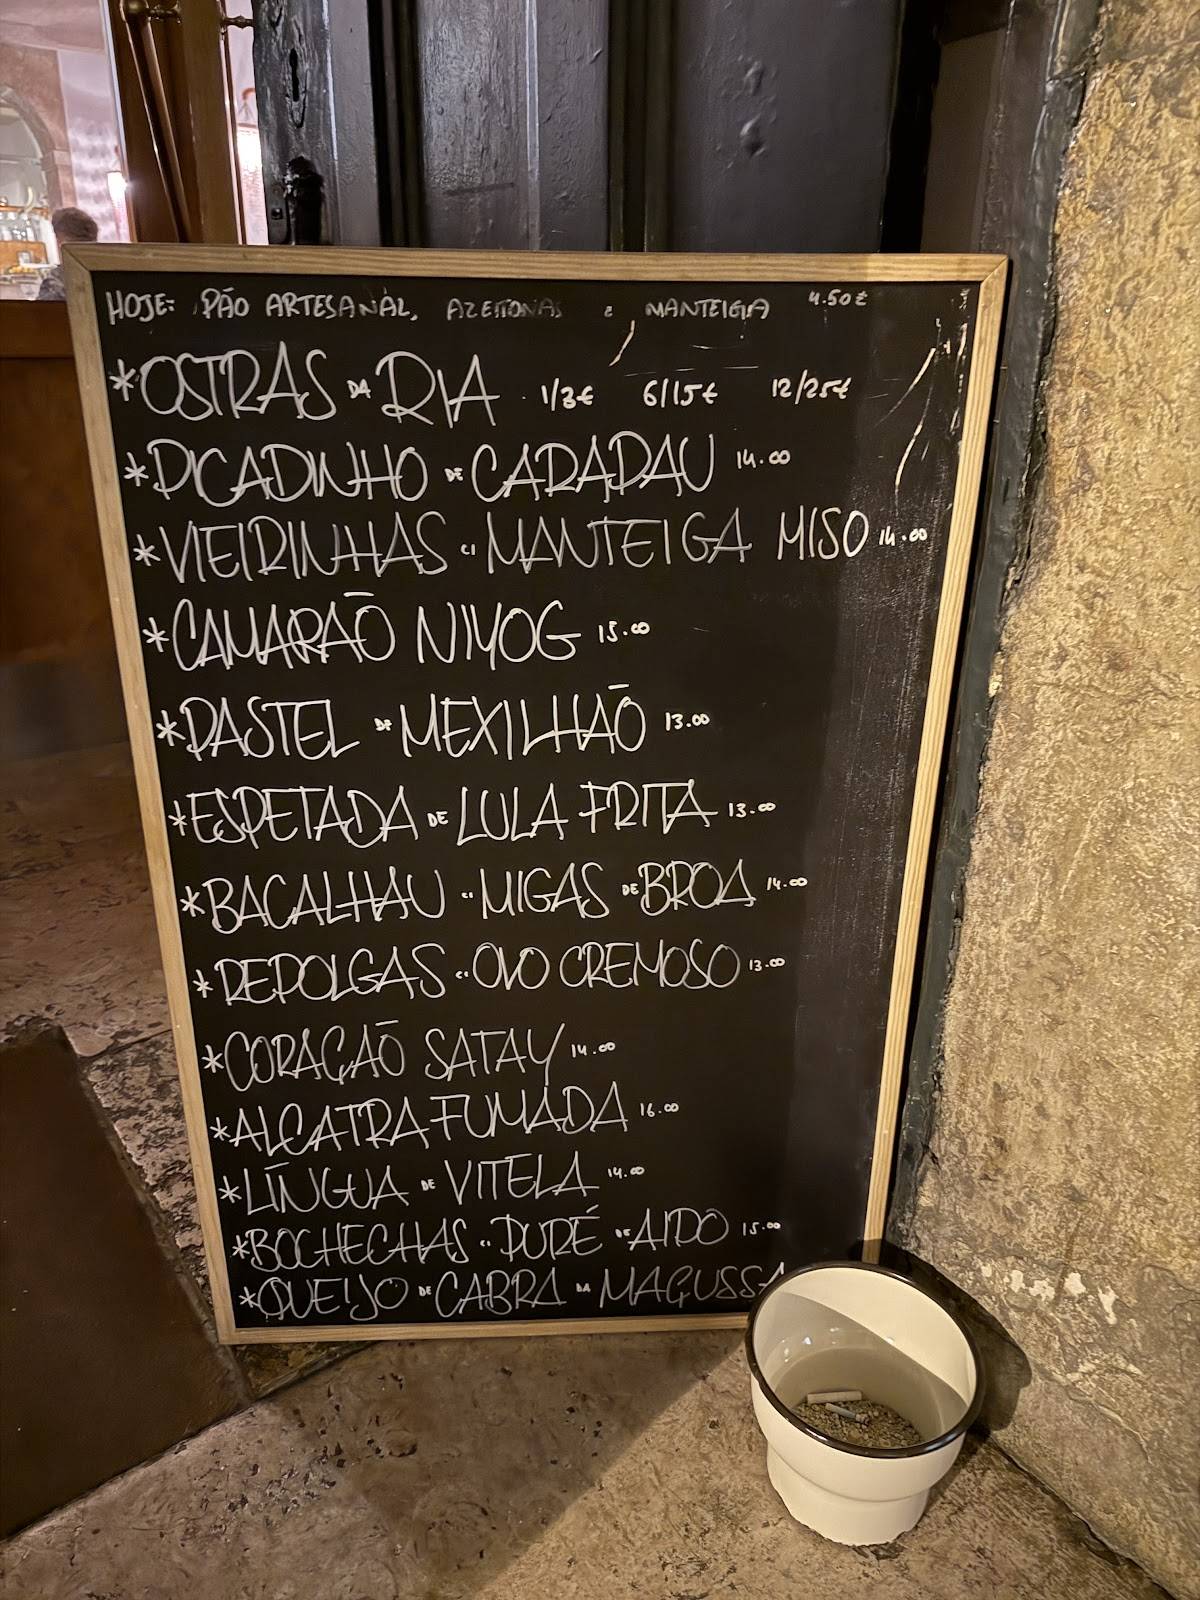 HOJE: PÃO ARTESANAL, AZEITONAS E MANTEIGA 4.50€
*OSTRAS DA RIA 1/3€ 6/15€ 12/25€
*PICADINHO DE CARAPAU 14.00
*VIEIRINHAS C/ MANTEIGA MISO 14.00
*CAMARÃO NIYOG 15.00
*PASTEL DE MEXILHÃO 13.00
*ESPETADA DE LULA FRITA 13.00
*BACALHAU C/ MIGAS DE BROA 14.00
*REPOLGAS C/ OVO CREMOSO 13.00
*CORAÇÃO SATAY 14.00
*ALCATRA FUMADA 16.00
*LÍNGUA DE VITELA 14.00
*BOCHECHAS C/ PURÉ DE AIPO 15.00
*QUEIJO DE CABRA DA MAÇUSSA